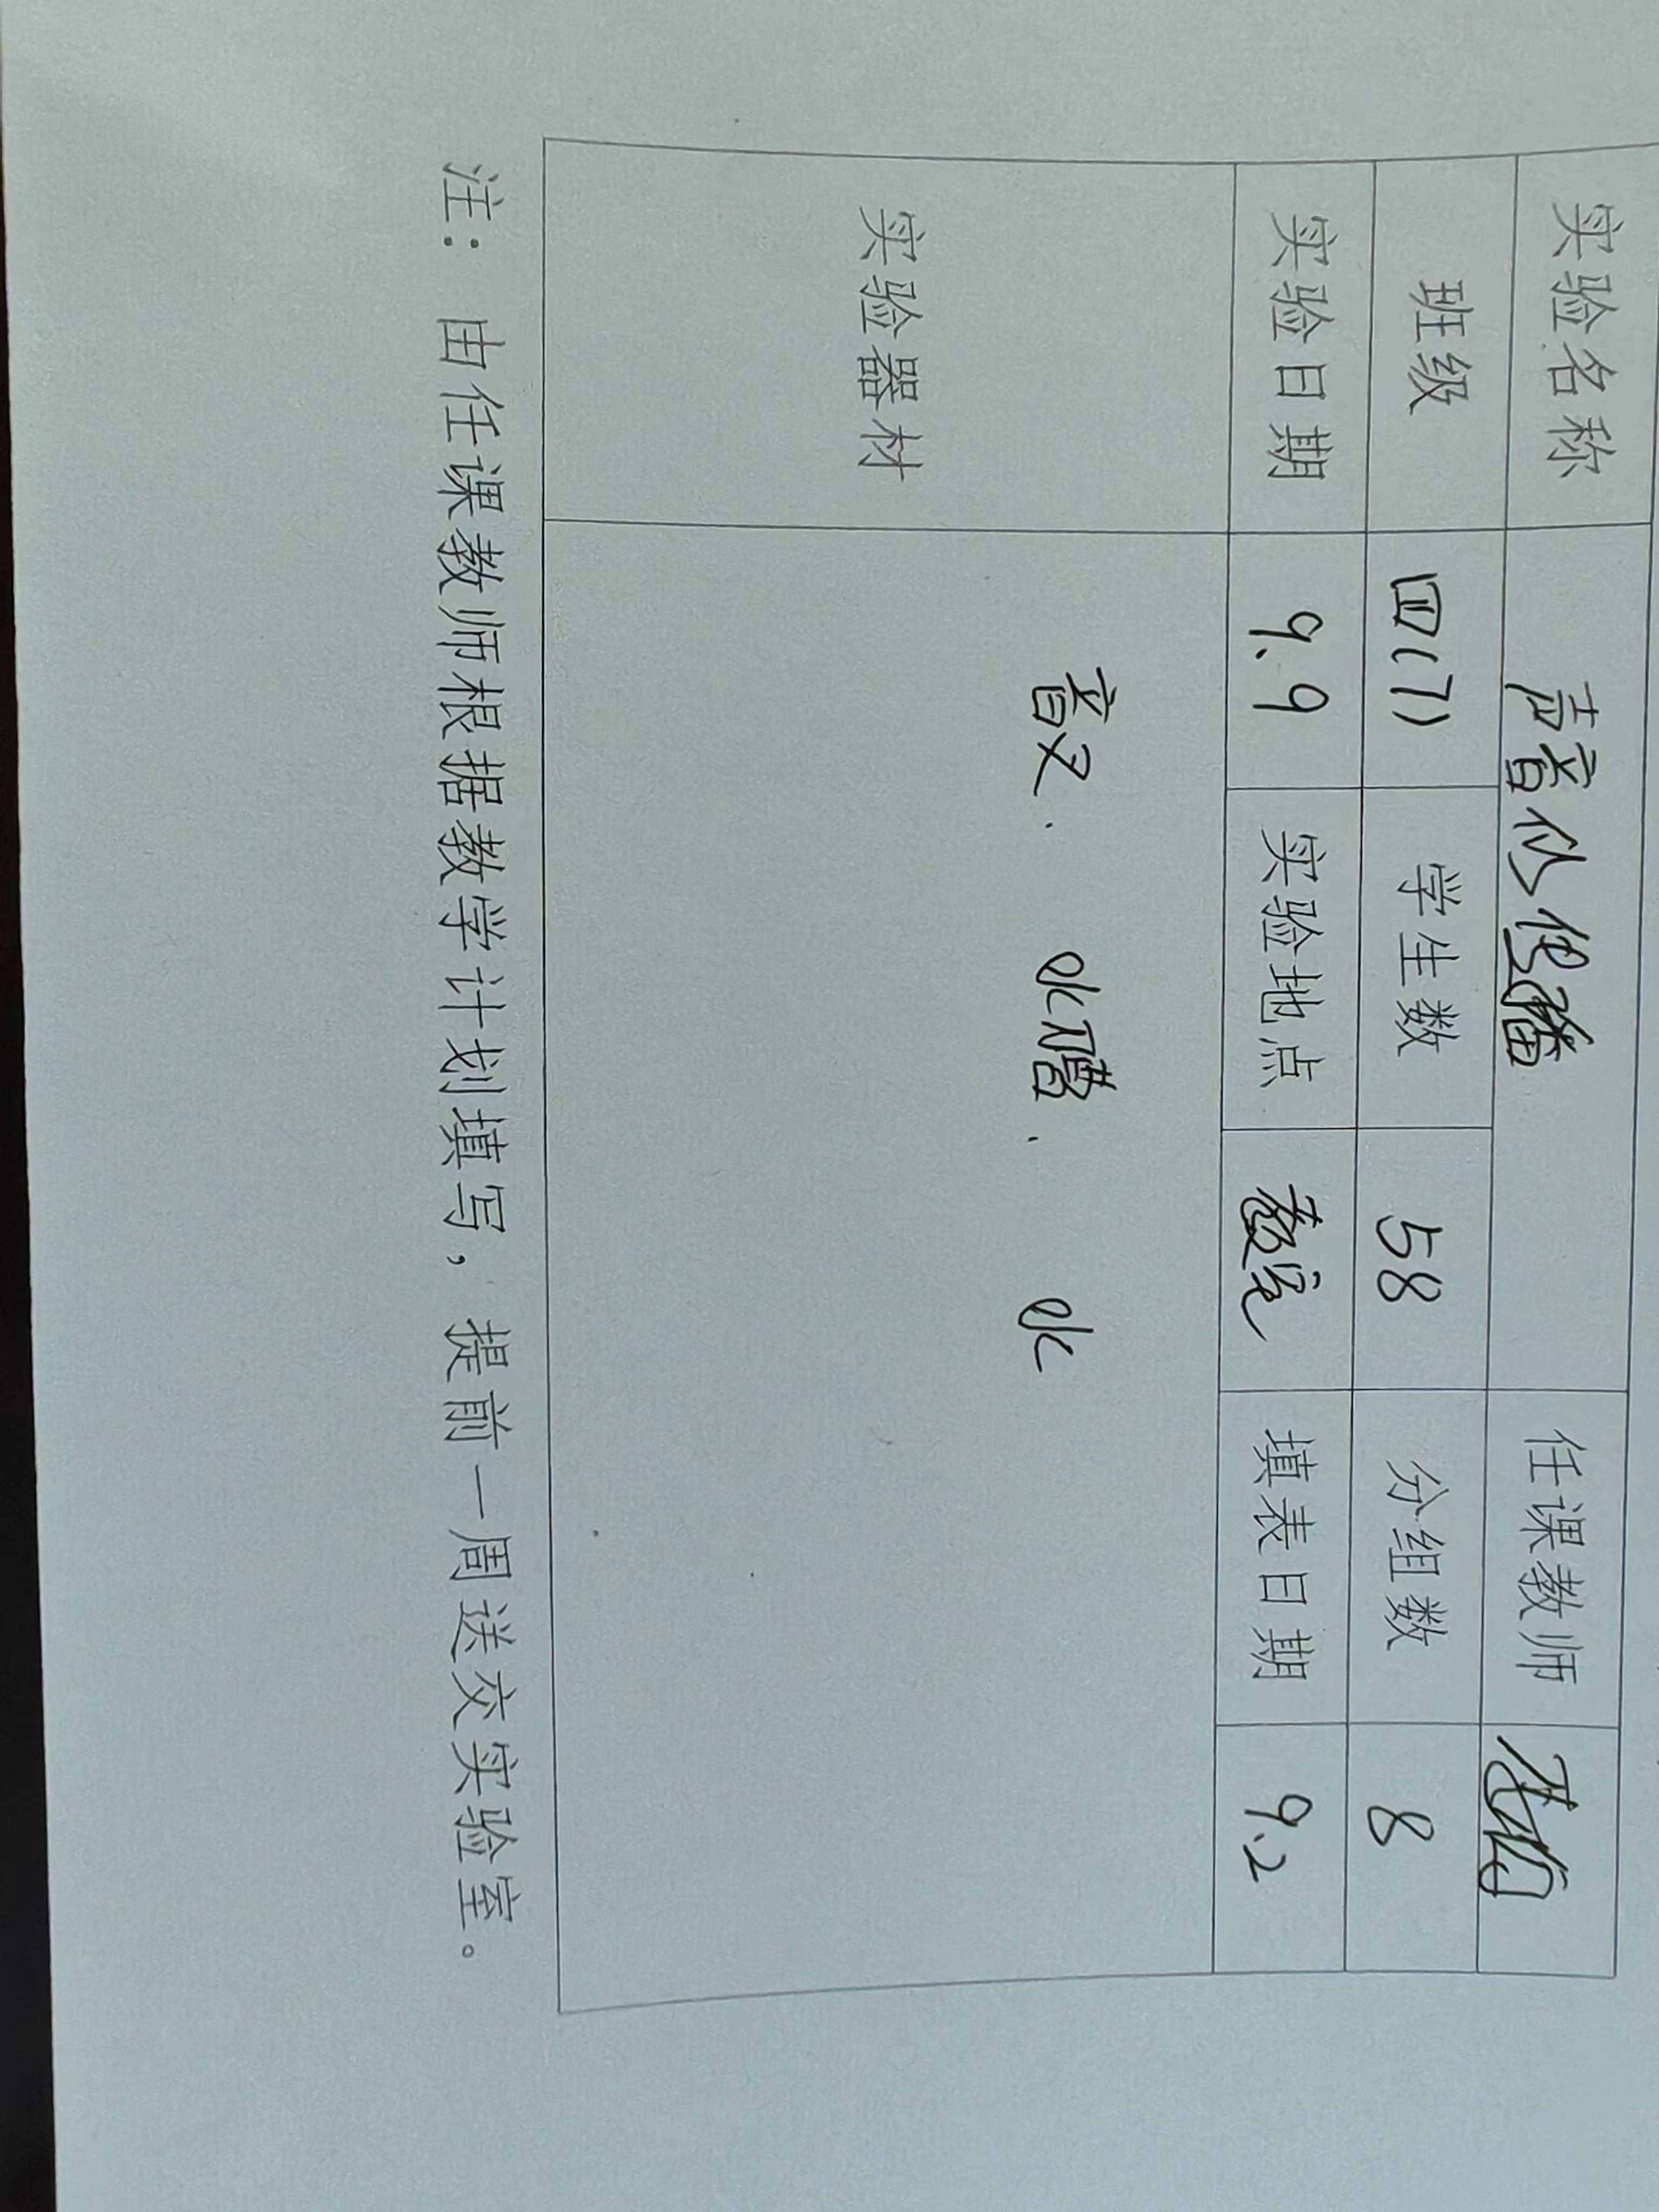 实验名称 声音的传播 任课教师
班级 四(7) 学生数 58 分组数 8
实验日期 9.9 实验地点 教室 填表日期 9.2
实验器材 音叉. 水槽. 水
注：由任课教师根据教学计划填写，提前一周送交实验室。